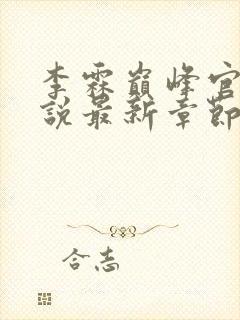 李霖巅峰官
說最新章節
合志